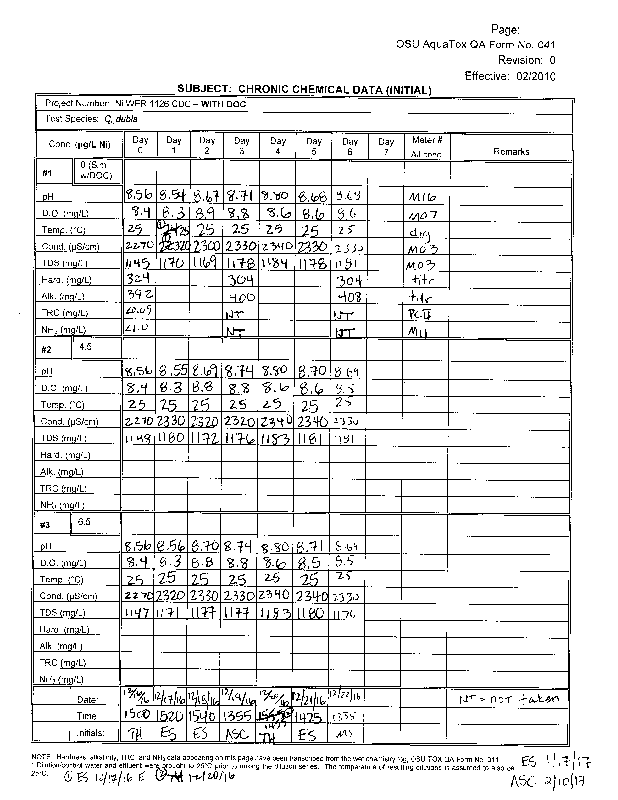 Page:
OSU AquaTox QA Form No. 041
Revision: 0
Effective: 02/2010
SUBJECT: CHRONIC CHEMICAL DATA (INITIAL)
Project Number: Ni WER 1126 CDC – WITH DOC
Test Species: C. dubia
Conc (µg/L Ni) Day 0 Day 1 Day 2 Day 3 Day 4 Day 5 Day 6 Day 7 Meter # Remarks
#1 0 (Sim w/DOC)
pH 8.56 8.54 8.67 8.71 8.80 8.68 8.68 M16
D.O. (mg/L) 8.4 8.3 8.9 8.8 8.6 8.6 8.6 M07
Temp. (°C) 25 25 25 25 25 25 25
Cond. (µS/cm) 2270 2320 2300 2330 2340 2330 2330 M03
TDS (mg/L) 1145 1170 1169 1178 1184 1178 1181 M03
Hard. (mg/L) 324 304 304 titr
Alk. (mg/L) 392 400 408 titr
TRC (mg/L) NT NT
NH3 (mg/L) <1.0 NT NT M11
#2 4.5
pH 8.56 8.55 8.69 8.74 8.80 8.70 8.69
D.O. (mg/L) 8.4 8.3 8.8 8.8 8.6 8.6 8.5
Temp. (°C) 25 25 25 25 25 25 25
Cond. (µS/cm) 2270 2330 2320 2320 2340 2340 2330
TDS (mg/L) 1148 1180 1172 1176 1183 1181 1181
Hard. (mg/L)
Alk. (mg/L)
TRC (mg/L)
NH3 (mg/L)
#3 6.5
pH 8.56 8.56 8.70 8.74 8.80 8.71 8.69
D.O. (mg/L) 8.4 8.3 8.8 8.8 8.6 8.5 8.5
Temp. (°C) 25 25 25 25 25 25 25
Cond. (µS/cm) 2270 2320 2330 2330 2340 2340 2330
TDS (mg/L) 1147 1171 1177 1177 1183 1180 1176
Hard. (mg/L)
Alk. (mg/L)
TRC (mg/L)
NH3 (mg/L)
Date: 12/16/16 12/17/16 12/18/16 12/19/16 12/20/16 12/21/16 12/22/16 NT = not taken
Time 1500 1520 1540 1355 1425 1335
Initials: TH ES ES ASC TH ES
NOTE: Hardness, alkalinity, TRC, and NH3 data appearing on this page have been transcribed from the wet chemistry log, OSU TOX QA Form No. 011. ES 1/17/17
* Dilution/control water and effluent were brought to 25°C prior to making the dilution series. The temperature of resulting dilutions is assumed to also be
25°C. ① ES 12/17/16 E ② TH 12/20/16 ASC 2/10/17